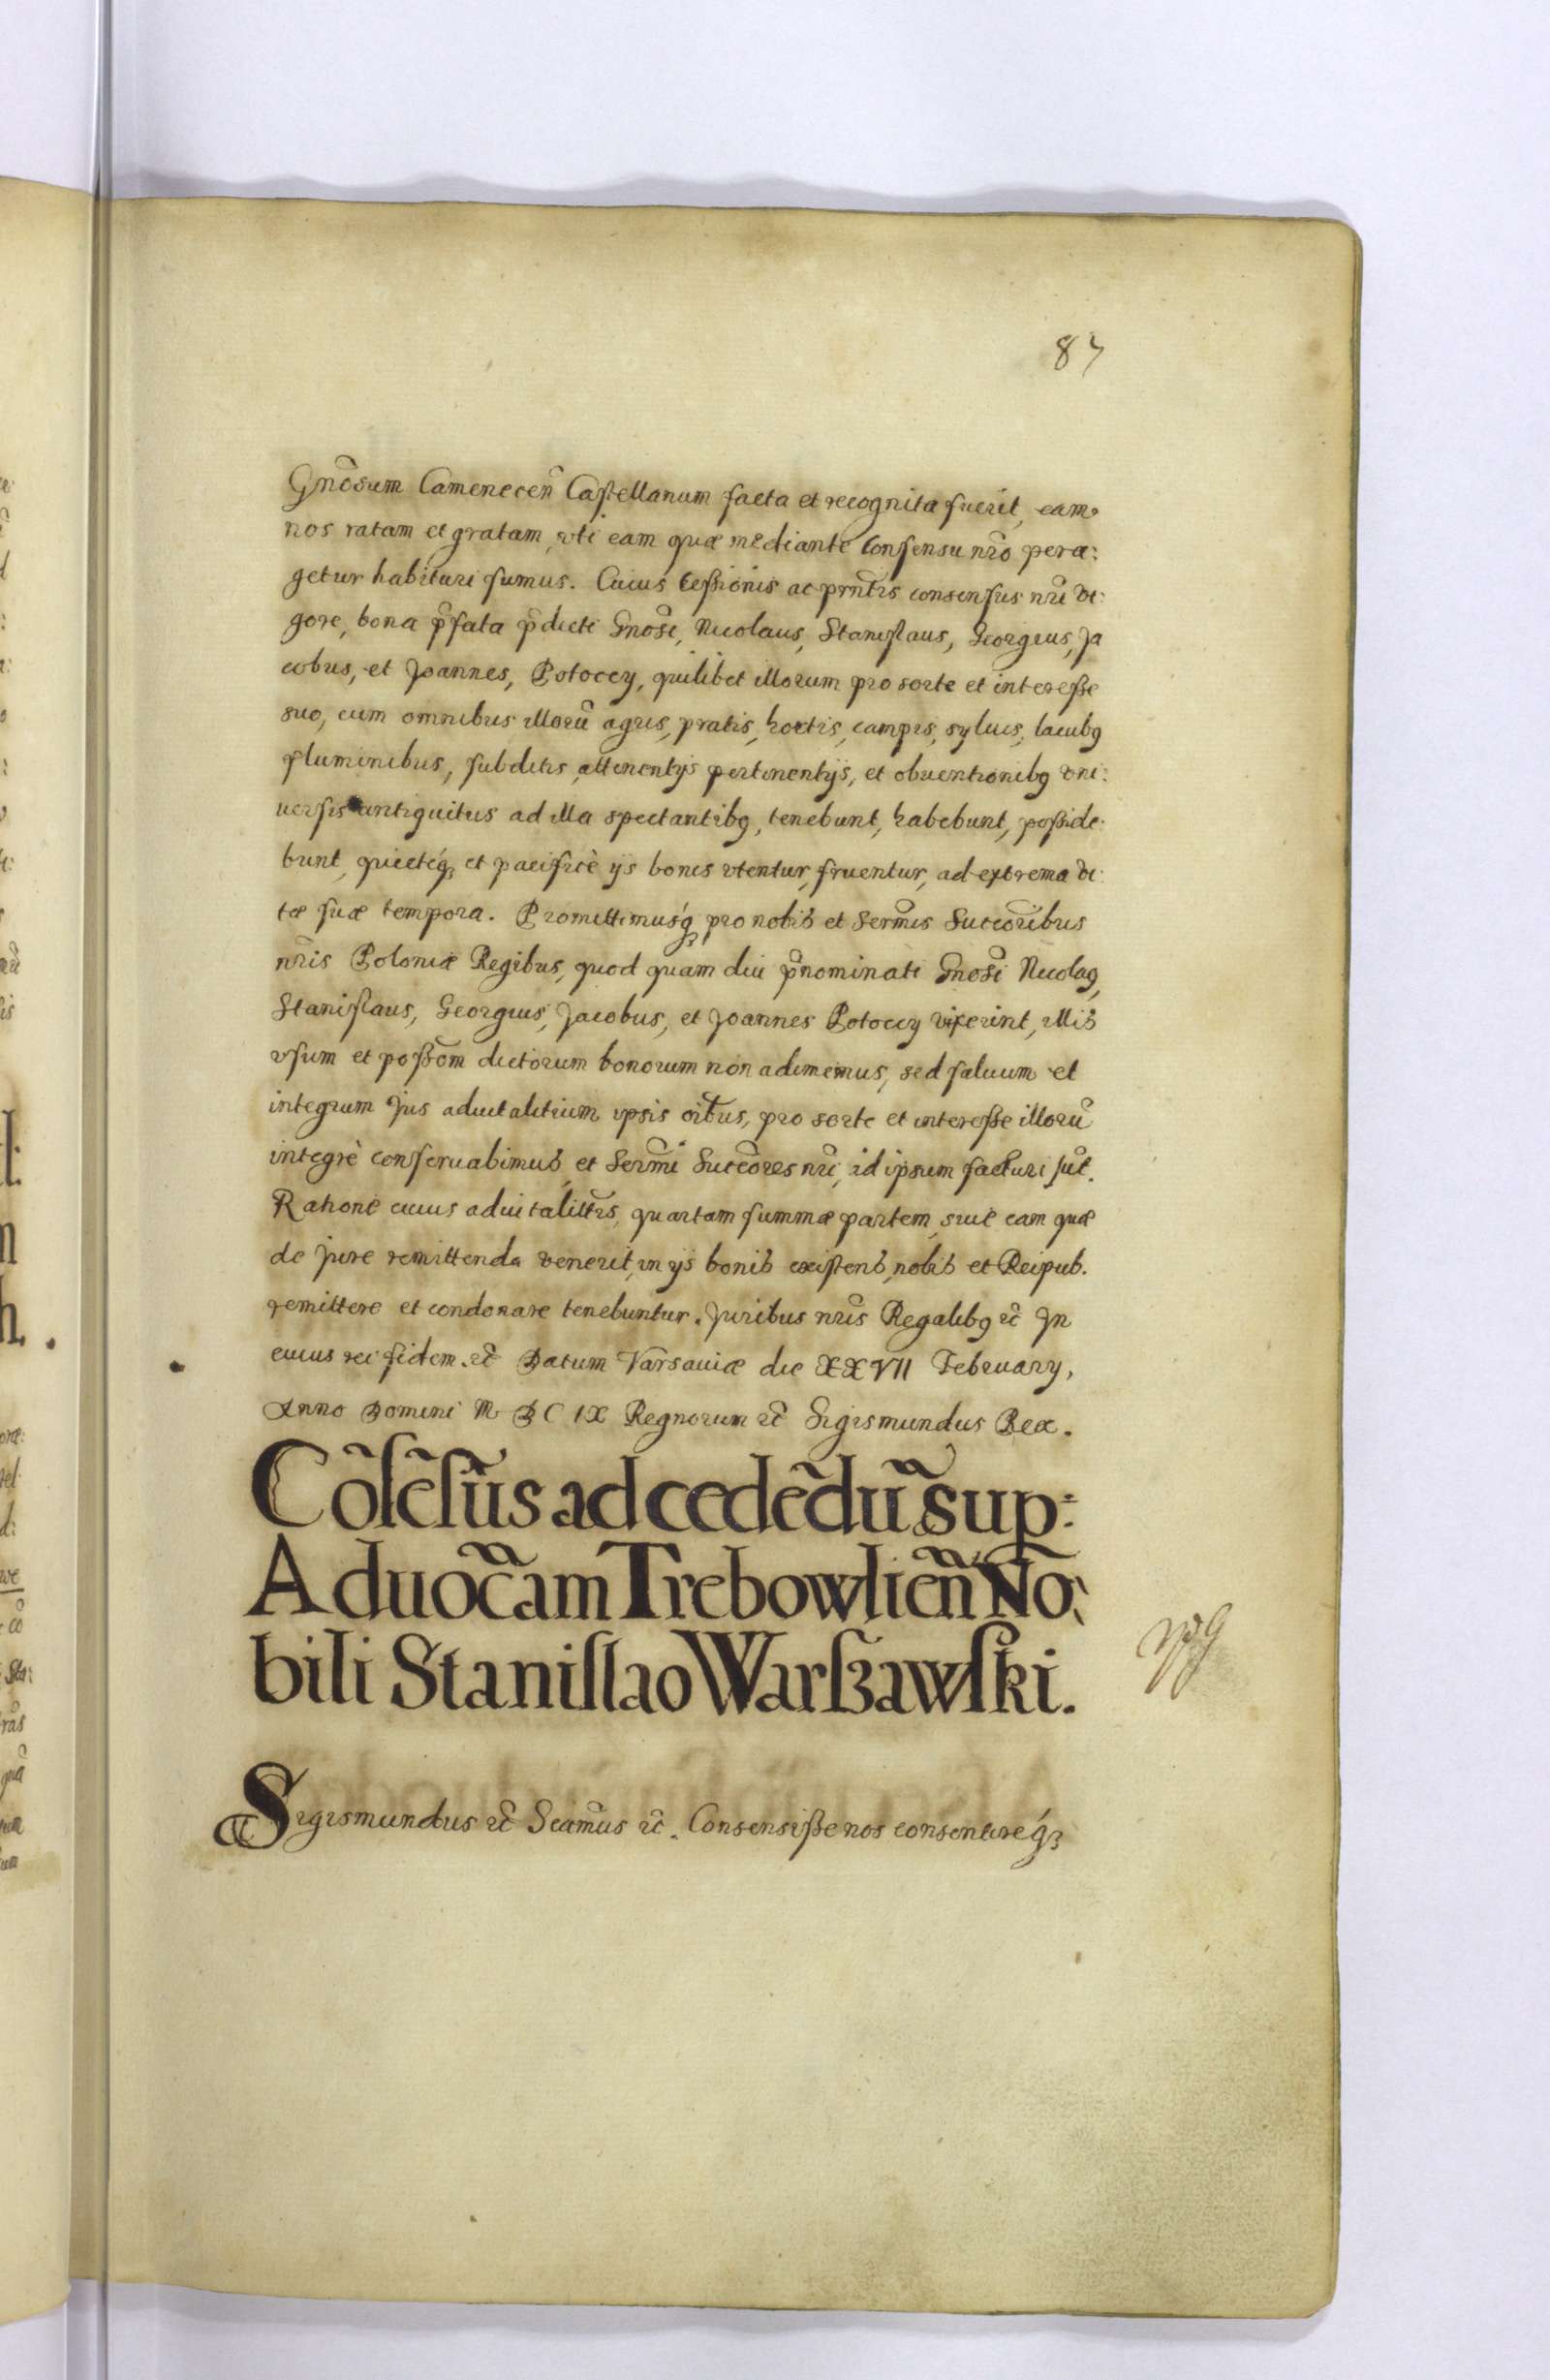 87
Gnõsum Camenecen̄ Castellanum facta et recognita fuerit, eam
nos ratam et gratam, vti eam quæ mediante Consensu nrõ pera:
getur habituri sumus. Cuius Cessionis ac prñtis consensus nrĩ vi:
gore, bona p̃fata p̃dicti Gnosi, Nicolaus, Stanislaus, Georgius, Ja
cobus, et Joannes, Potoccy, quilibet illorum pro sorte et interesse
suo, cum omnibus illorũ agris, pratis, hortis, campis, syluis, lacubq
fluminibus, subditis, attinentijs pertinentijs, et obuentionibq vni:
uersis antiquitus ad illa spectantibq, tenebunt, habebunt, posside:
bunt, quietéq et pacificè ijs bonis vtentur, fruentur, ad extrema vi:
tæ suæ tempora. Promittimusq́ pro nobis et Serm̃is Succorĩbus
nrĩs Poloniæ Regibus, quod quam diu p̃nominati Gnosĩ Nicolaq,
Stanislaus, Georgius, Jacobus, et Joannes Potoccy vixerint, illis
vsum et possom̃ dictorum bonorum non adimemus, sed saluum et
integrum Jus aduitalitium ipsis oĩbus, pro sorte et interesse illorũ
integrè conseruabimus, et Serm̃i Succõres nrĩ, id ipsum facturi sũt.
Ratione cuius aduitalittĩs, quartam summæ partem, siue eam quæ
de Jure remittenda venerit, in ijs bonis existens, nobis et Reipub.
remittere et condonare tenebuntur. Juribus nrĩs Regalibq etc̃ In
cuius rei fidem. etc̃ Datum Varsauiæ die XXVII February,
Anno Domini M DC IX Regnorum etc̃ Sigismundus Rex.
Cõsẽsũs ad cedẽdũ sup:
Aduoc̃am Trebowlien̄ No:
bili Stanislao Warszawski.
Sigismundus etc̃ Scam̃us etc̃. Consensisse nos consentireq́